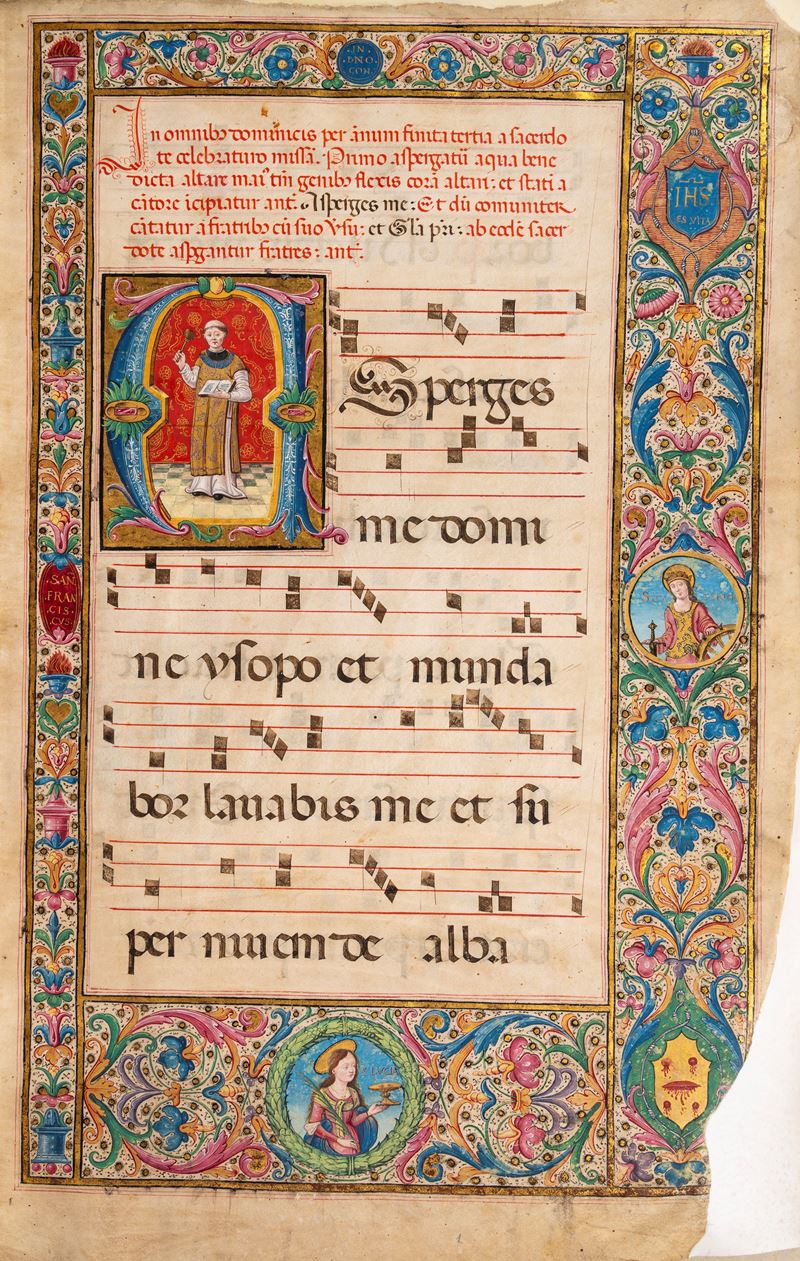 IN
DNO
CON
In omnibꝰ dominicis per ãnum finita tertia a sacerdo
te celebraturo missã. Primo aspergatũ aqua bene
dicta altare
genibꝰ flexis corã altari: et stati a
cãtore ĩcipiatur antꝰ. Asperges me: Et dũ comuniter
cãtatur a fratribꝰ cũ suo vsu: et Gl̃a pr̃i: ab eodẽ sacer
dote aspgantur fratres: ant:
IHS
ES VITA
Asperges
me domi
SAN
FRAN
CIS
CVS
ne ysopo et munda
bor lauabis me et su
per niuem de alba
S LVCIA